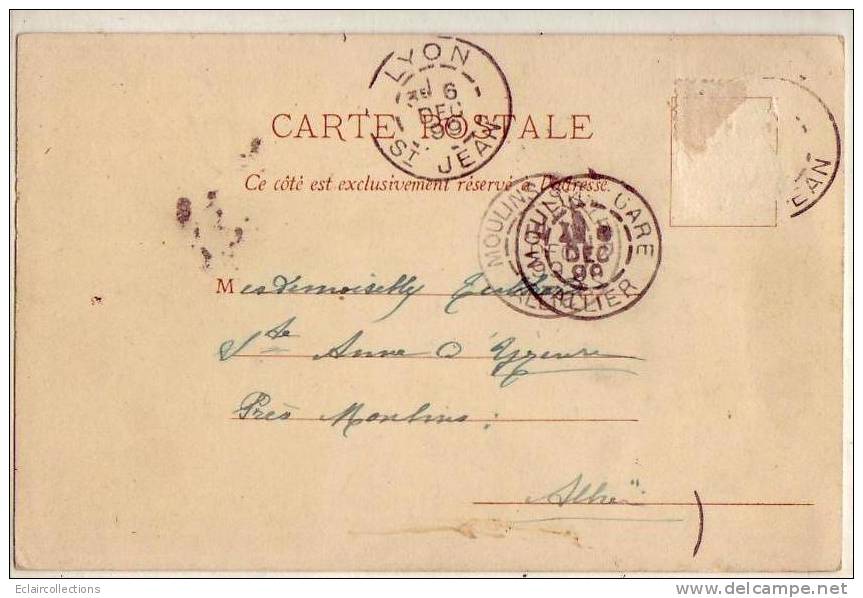 LYON
6
DEC
99
ST JEAN
CARTE POSTALE
Ce côté est exclusivement réservé à l'adresse.
JEAN
MOULINS GARE
DEC
ALLIER
Mesdemoiselles
Ste Anne d'Yzeure
Près Moulins:
Allier
Eclaircollections
delcampe.net